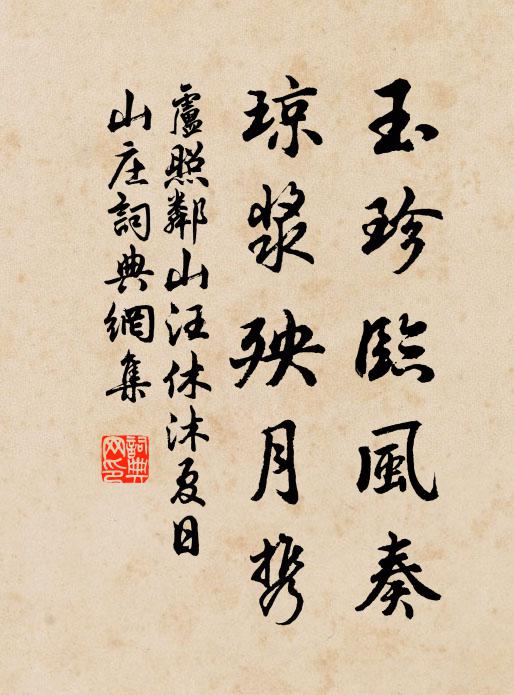 玉珍臨風奏
琼漿殃月携
盧照鄰山汪休沐夏日
山庄詞典網集
詞典网印